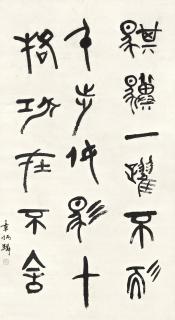 騏驥一躍不能
十步駑馬十
駕功在不舍
章炳麟